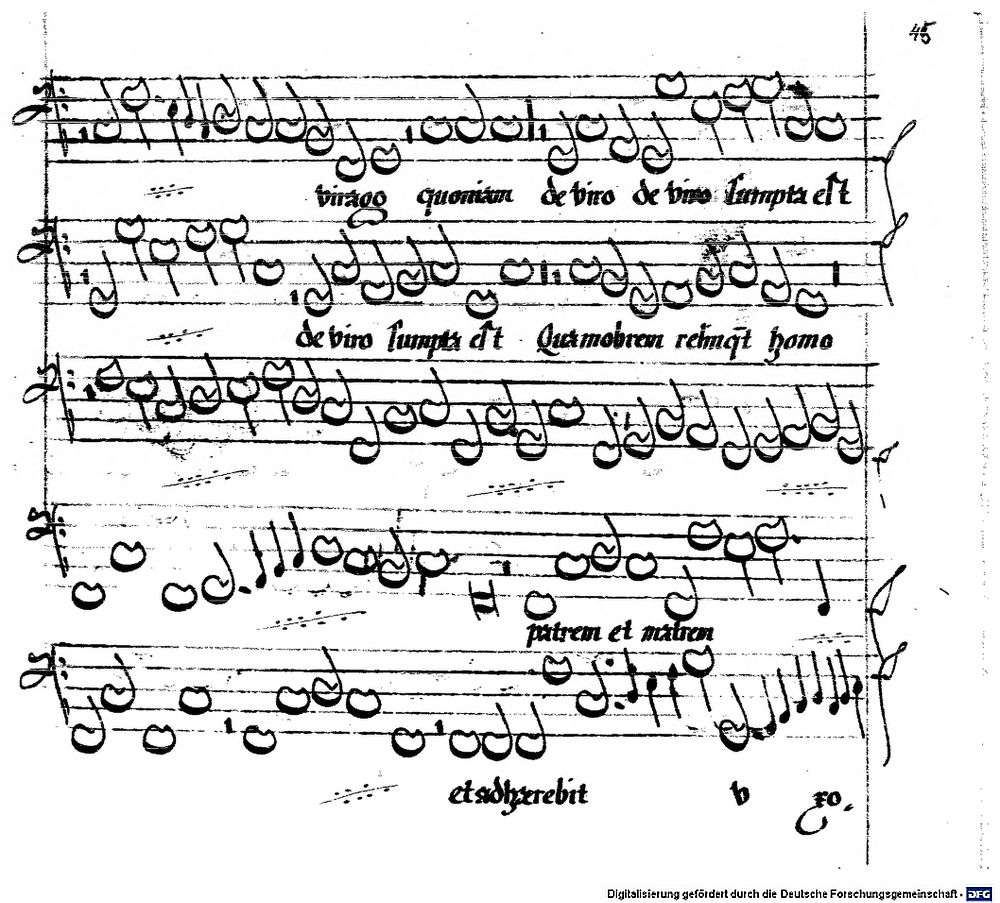 45
virago quoniam de viro de viro sumpta est
de viro sumpta est Quamobrem relinq̄t homo
patrem et matrem
et adhærebit v xo.
Digitalisierung gefördert durch die Deutsche Forschungsgemeinschaft - DFG